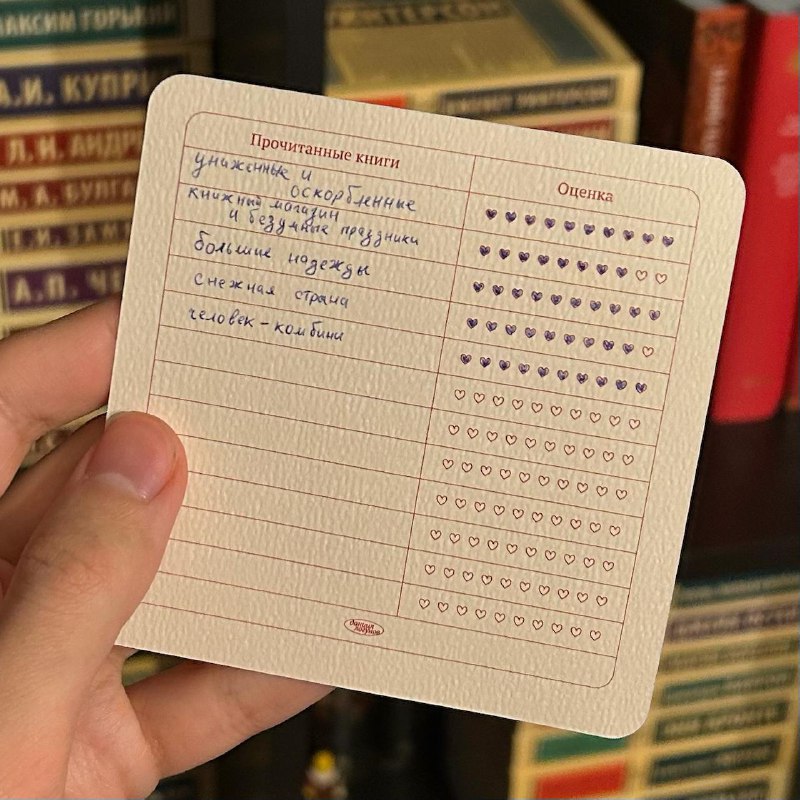 МАКСИМ ГОРЬКИЙ
А.И. КУПРИ
Л. Н. АНДР
М. А. БУЛГА
А.П. ЧЕ
Прочитанные книги
Оценка
униженные и
оскорбленные
книжный магазин
и безумные праздники
большие надежды
снежная страна
человек-комбини